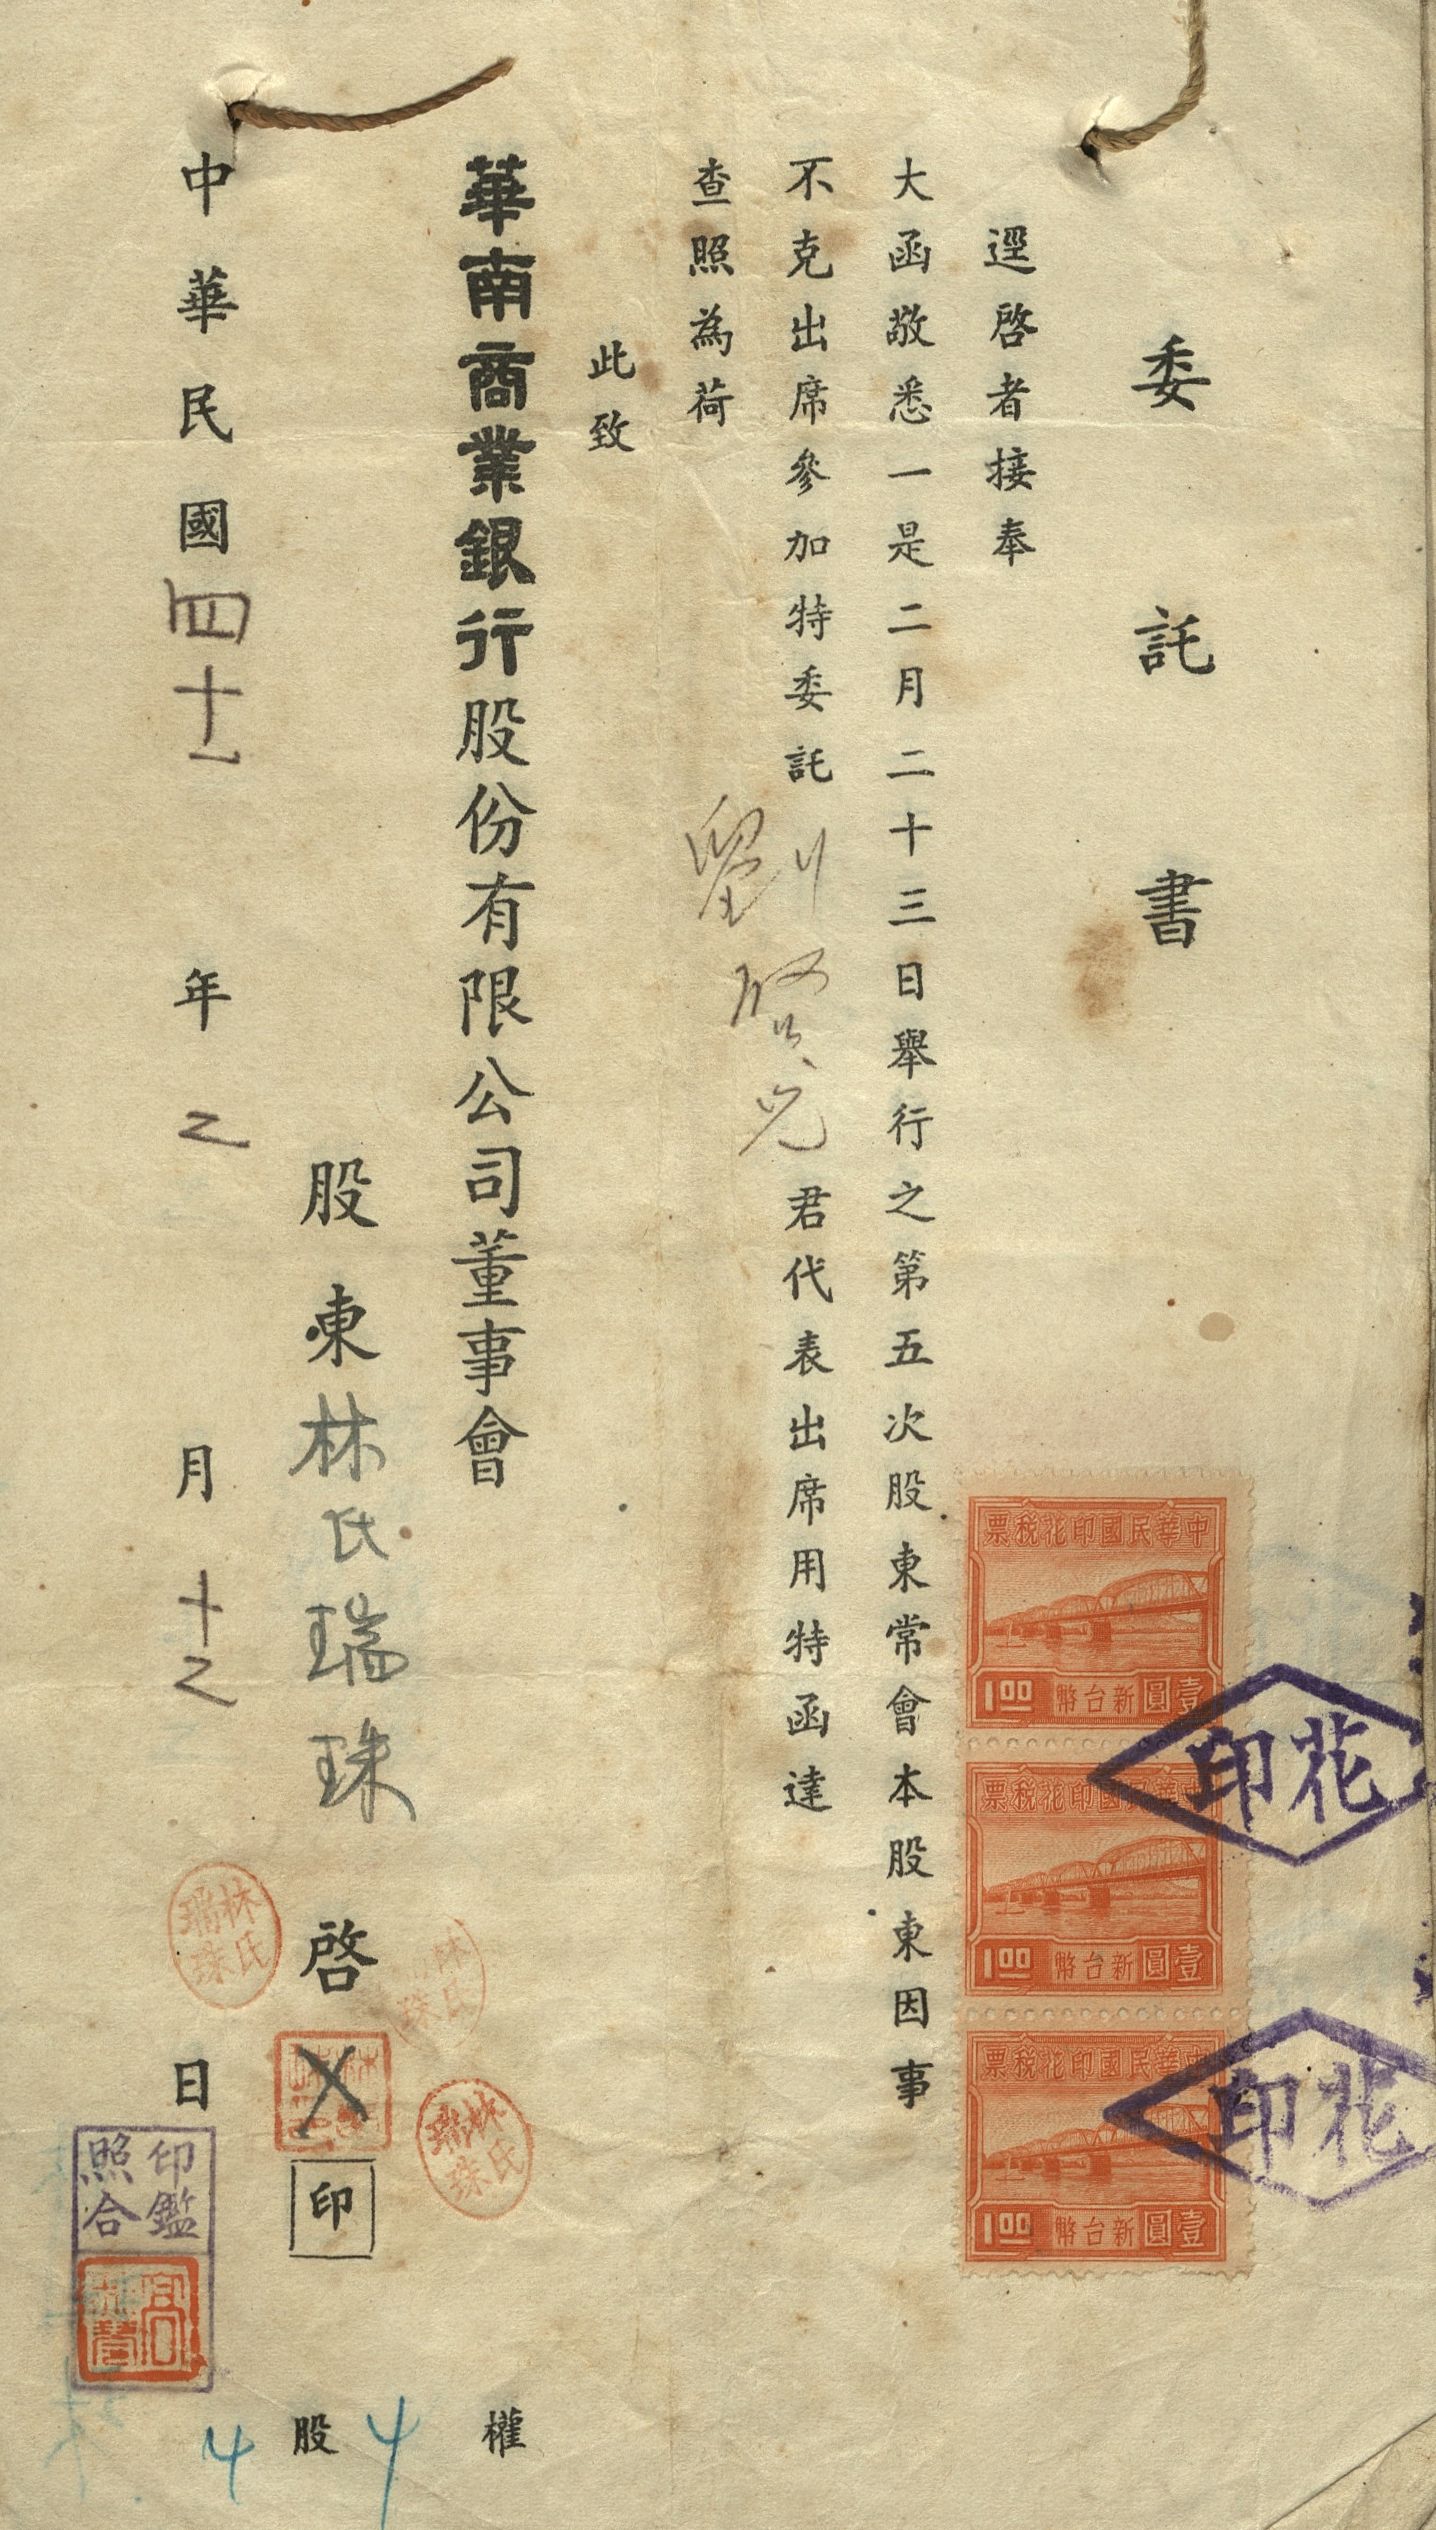 委託書
逕啓者接奉
大函敬悉一是二月二十三日舉行之第五次股東常會本股東因事
不克出席參加特委託劉啓光君代表出席用特函達
查照為荷
此致
華南商業銀行股份有限公司董事會
股東林氏瑞珠啓
印
中華民國四十一年乙月十乙日
權4股4
中華民國印花稅票
1.00 新台幣壹圓
中華民國印花稅票
1.00 新台幣壹圓
中華民國印花稅票
1.00 新台幣壹圓
印花
印花
林氏瑞珠
林氏瑞珠
林氏瑞珠
印鑑照合